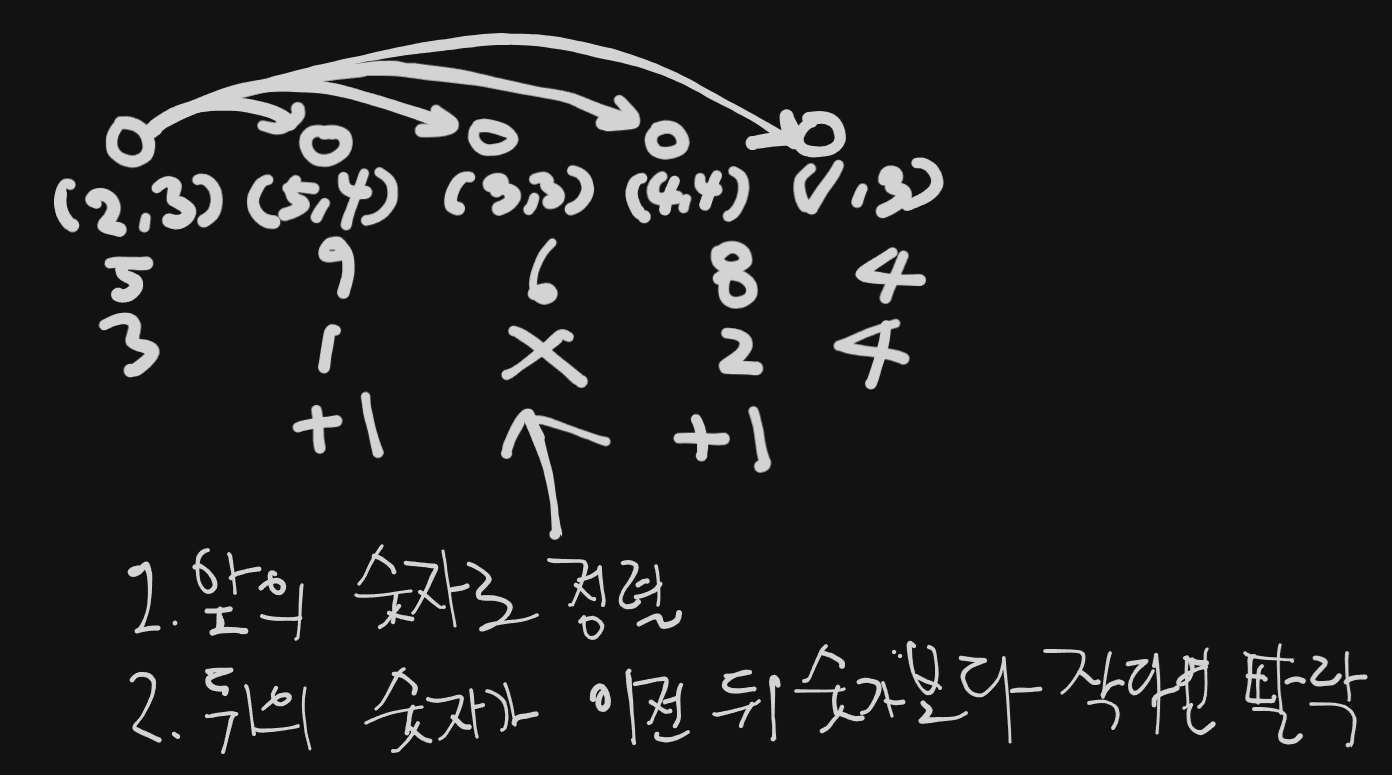 O O O O O
(2,3) (5,4) (3,3) (4,4) (1,3)
5 9 6 8 4
3 1 X 2 4
+1 +1
1. 앞의 숫자로 정렬
2. 뒤의 숫자가 이전 뒤 숫자보다 작다면 탈락